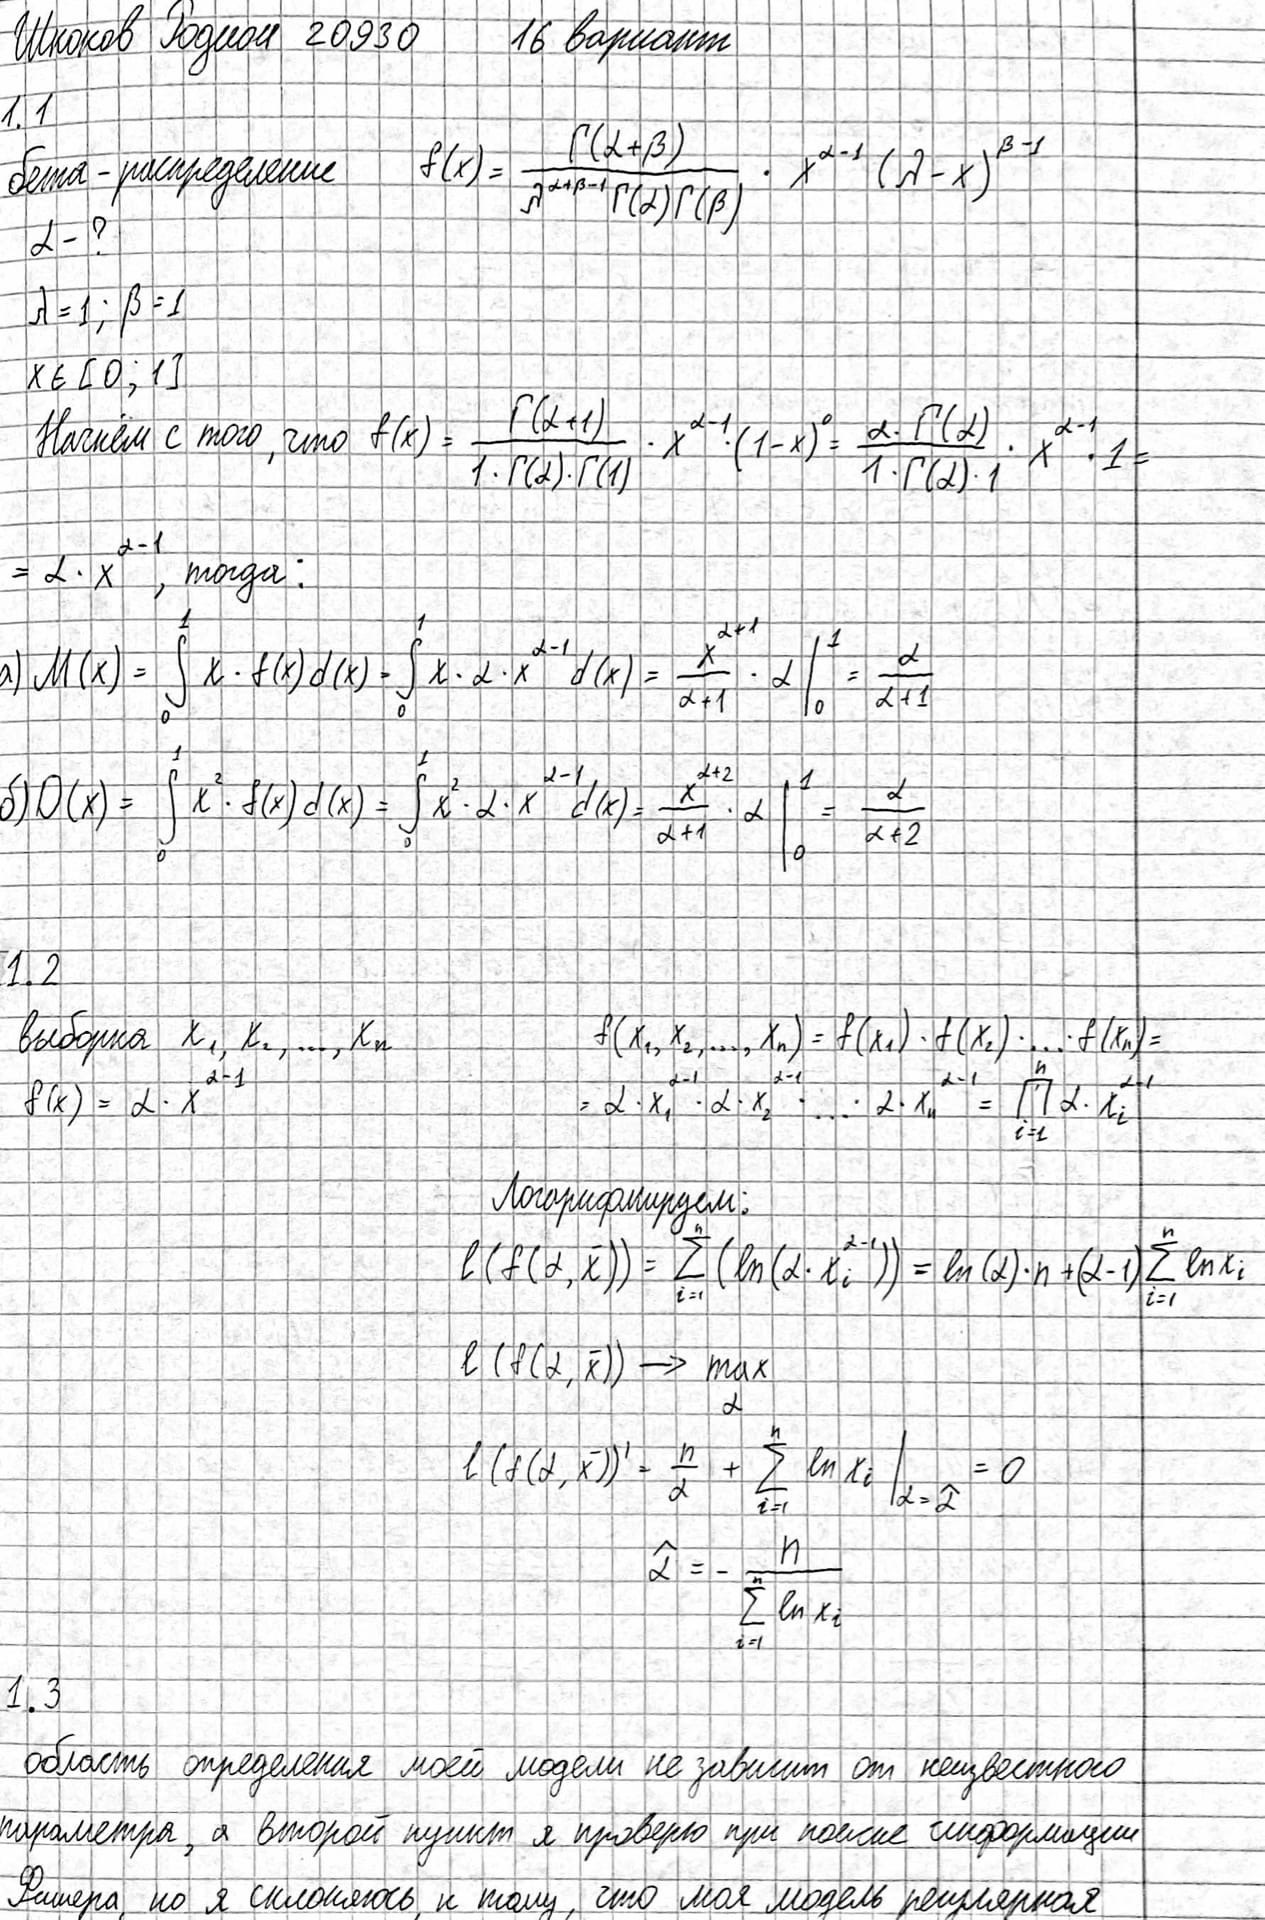 Шкоков Родион 20930 16 вариант
1.1
бета-распределение f(x) = Γ(α+β) / (λ^(α+β-1) Γ(α)Γ(β)) · x^(α-1) (λ-x)^(β-1)
α - ?
λ = 1; β = 1
x ∈ [0; 1]
Начнём с того, что f(x) = Γ(α+1) / (1·Γ(α)·Γ(1)) · x^(α-1) · (1-x)^0 = α·Γ(α) / (1·Γ(α)·1) · x^(α-1) · 1 =
= α · x^(α-1), тогда:
а) M(x) = ∫_0^1 x · f(x) d(x) = ∫_0^1 x · α · x^(α-1) d(x) = x^(α+1) / (α+1) · α |_0^1 = α / (α+1)
б) D(x) = ∫_0^1 x² · f(x) d(x) = ∫_0^1 x² · α · x^(α-1) d(x) = x^(α+2) / (α+1) · α |_0^1 = α / (α+2)
1.2
выборка x₁, x₂, ..., xₙ f(x₁, x₂, ..., xₙ) = f(x₁) · f(x₂) · ... · f(xₙ) =
f(x) = α · x^(α-1) = α · x₁^(α-1) · α · x₂^(α-1) · ... · α · xₙ^(α-1) = ∏_{i=1}^n α · x_i^(α-1)
Логорифмируем:
l(f(α, x̄)) = ∑_{i=1}^n (ln(α · x_i^(α-1))) = ln(α) · n + (α-1) ∑_{i=1}^n ln x_i
l(f(α, x̄)) → max_α
l(f(α, x̄))' = n/α + ∑_{i=1}^n ln x_i |_{α = α̂} = 0
α̂ = - n / ∑_{i=1}^n ln x_i
1.3
область определения моей модели не зависит от неизвестного
параметра, а второй пункт я проверю при поиске информации
Фишера, но я склоняюсь к тому, что моя модель регулярная